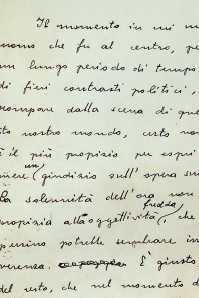 Il momento in cui un
uomo che fu al centro, per
un lungo periodo di tempo
di fieri contrasti politici,
scompare dalla scena di que
sto nostro mondo, certo non
è il più propizio per espri
mere un giudizio sull'opera sua
la solennità dell'ora non
propizia all'oggettività fredda, che
persino potrebbe sembrare in
verenza. È giusto,
del resto, che nel momento d